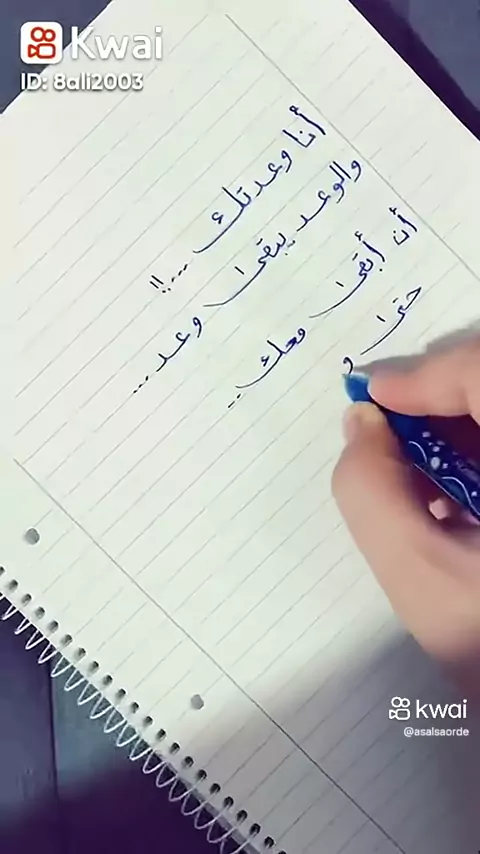 Kwai
ID: 8ali2003
أنا وعدتك ....!!
والوعد يبقى وعد ...
أن أبقى معك ..
حتى و
kwai
@asalsaorde